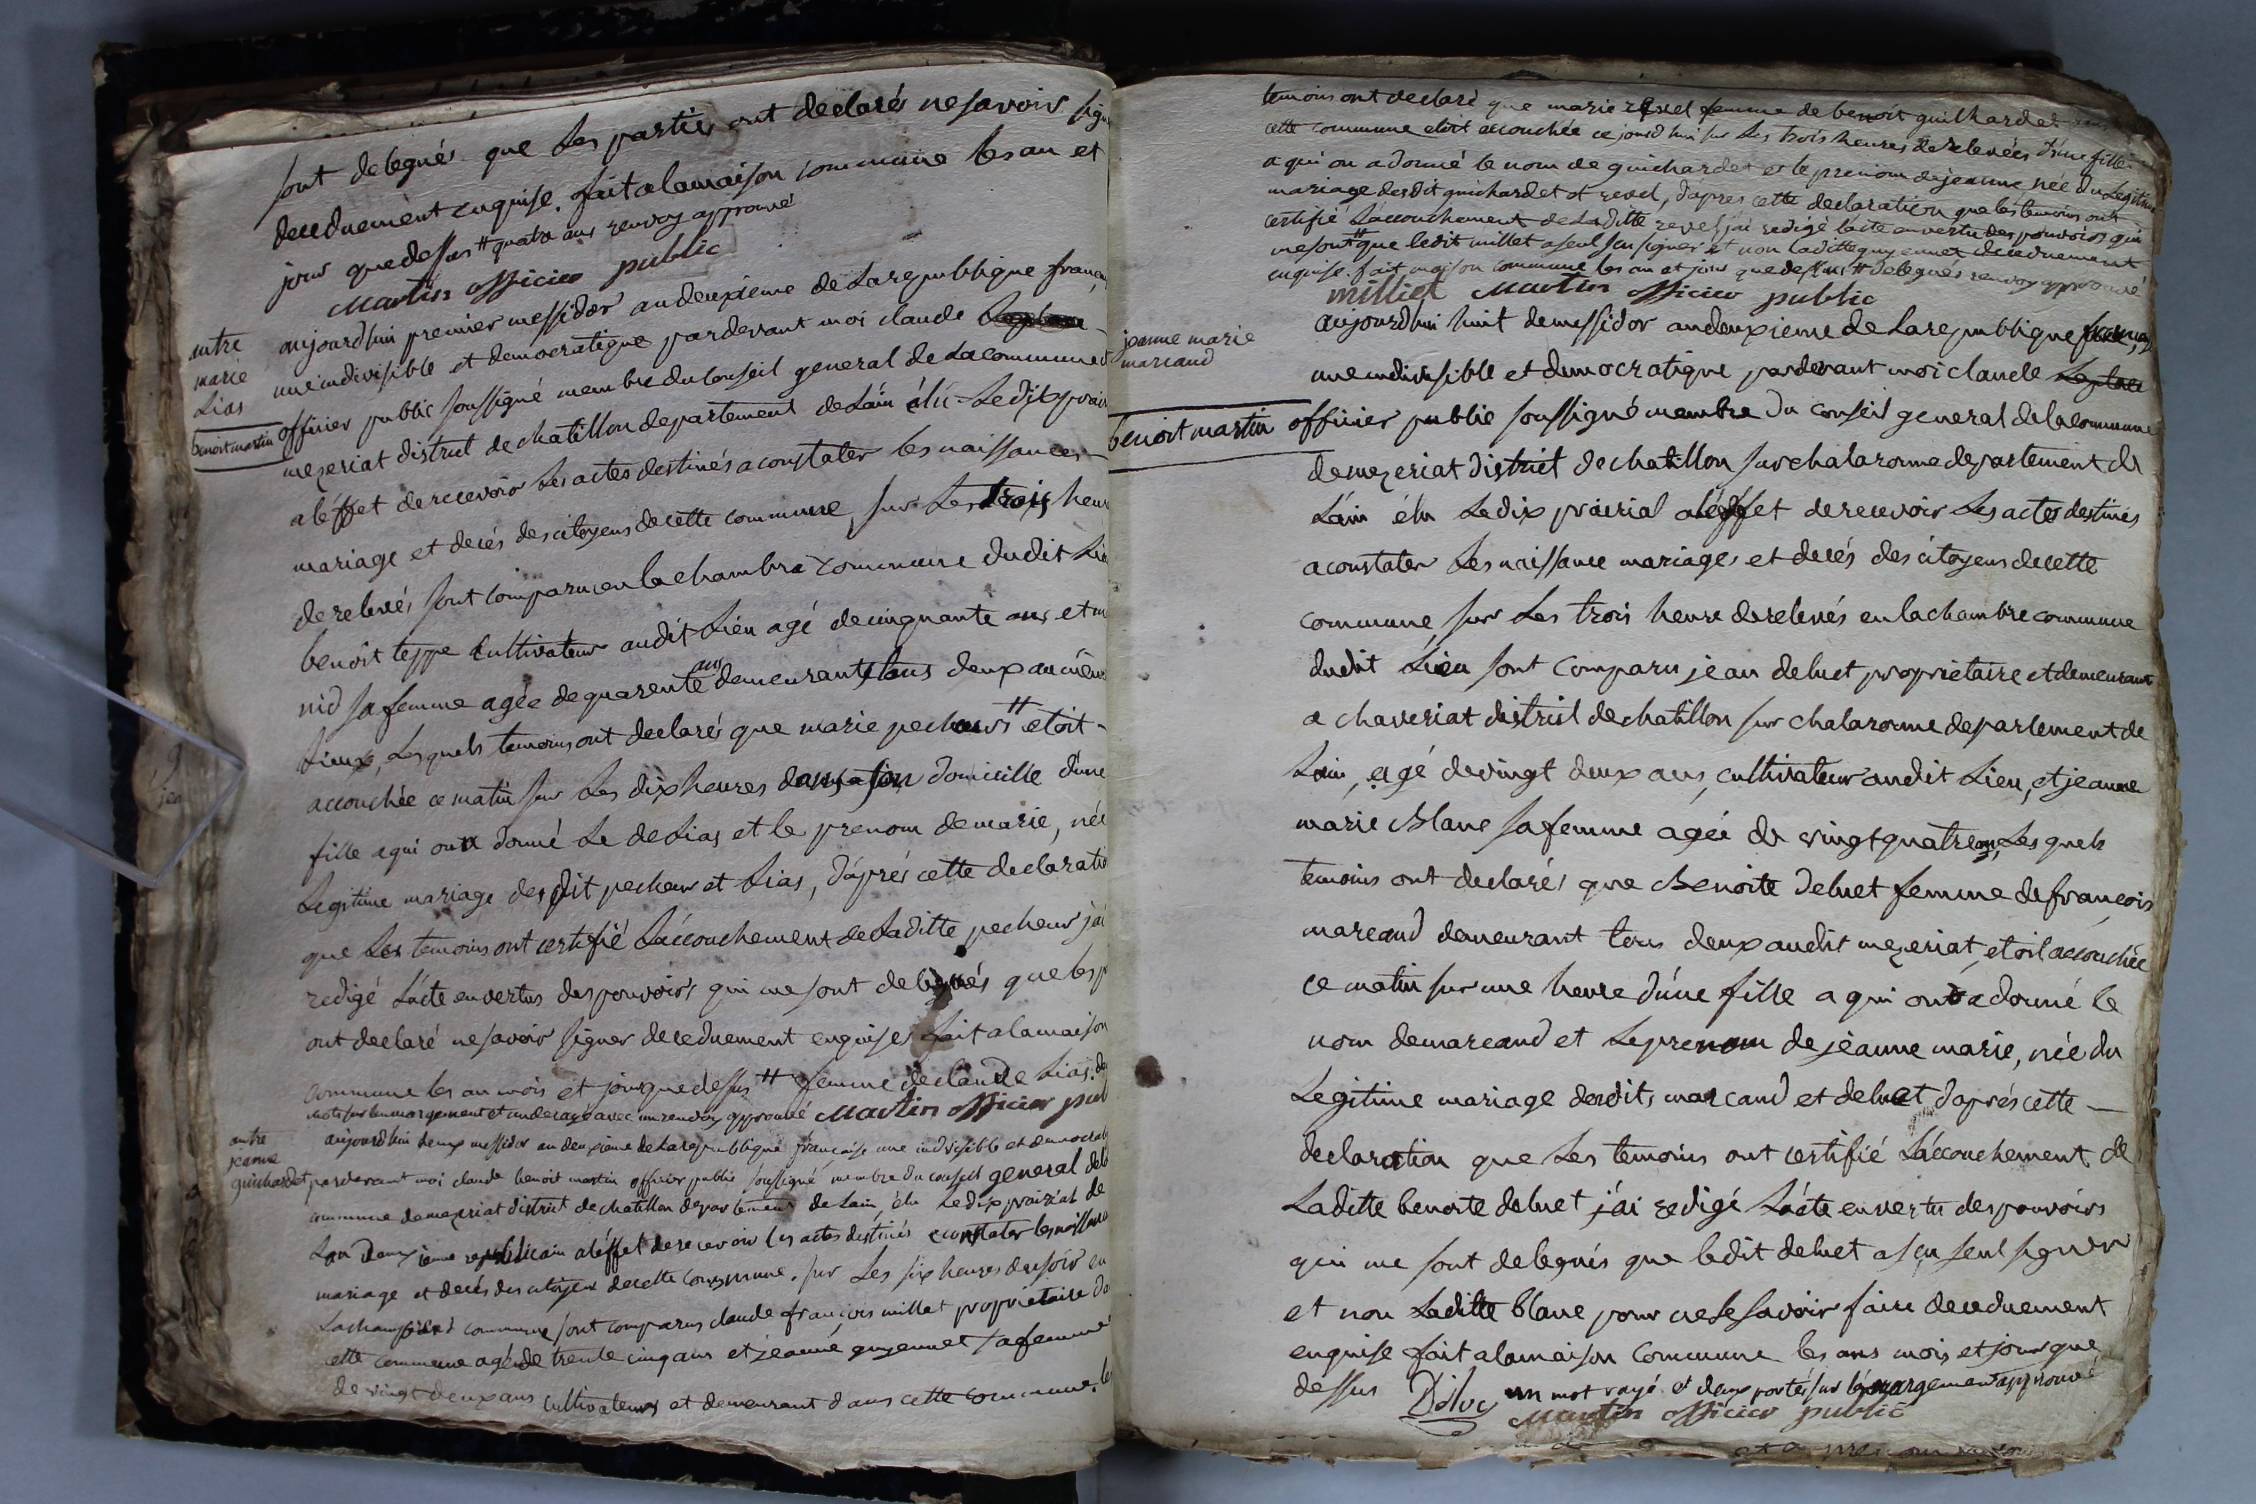 sont delegués que Les parties ont declarés ne savoir sign
deceduement enquise. fait a la maison commune les an et
jour que dessus # quatre ans renvoy approuvé
Martin officier public
autre
marie
Lias
benoit martin
aujourdhui premier messidor an deuxieme de La republique franç
une indivisible et democratique par devant moi claude
officier public soussigné membre du Conseil general de La commune d
mezeriat district de chatillon departement de Láin élu Le dix prair
a léffet de recevoir Les actes destinés a constater les naissances
mariage et decés des citoyens de cette commune, sur Les trois heur
de relevés sont comparu en la chambre commune dudit Lie
benoit teppe Cultivateur audit Lieu agé de cinquante ans et m
nid sa femme agée de quarente ans demeurants tous deux au mem
Lieux, Lesquels temoins ont declarés que marie pecheur # etoit
accouchée ce matin sur Les dix heures dans son domicille d'une
fille a qui on a donné Le de Lias et le prenom de marie, née
Legitime mariage desdit pecheur et Lias, d'aprés cette declaratio
que Les temoins ont certifié L'accouchement de Laditte pecheur j'ai
redigé L'acte en vertus des pouvoirs qui me sont delegués que les p
ont declaré ne savoir signer deceduement enquises fait a la maison
commune les an mois et jour que dessus # femme de claude Lias. de
mots sur l'emargement et un de rayé avec un renvoy approuvé Martin officier pub
autre
jeanne
guichardet
aujourdhui deux messidor an deuxieme de La republique française une indivisible et democrati
pardevant moi claude benoit martin officier public soussigné, membre du conseil general de la
commune de mezeriat district de chatillon departement de Lain, élu Le dix prairial de
Lan deuxieme republicain a léffet de recevoir les actes destinés a constater les naissance
mariage et decés des citoyens de cette commune. sur Les six heures du soir en
La chambre commune sont comparus claude françois millet proprietaire da
cette commune agé de trente cinq ans et jeanne guyennet sa femme
de vingt deux ans cultivateurs et demeurant dans cette commune. les
temoins ont declaré que marie revel femme de benoit guilhardet
cette commune etoit accouchée ce jourd'hui sur Les trois heures de relevées d'une fille
a qui on a donné le nom de guichardet et le prenom de jeanne née du Legitime
mariage desdit guichardet et revel, d'apres cette declaration que les temoins ont
certifié L'accouchement de Laditte revel j'ai redigé l'acte en vertu des pouvoirs qui
me sont # que ledit millet a seul su signer et non laditte guyennet deceduement
enquise. fait maison commune les an et jour que dessus # delegués renvoy approuvé
milliet Martin officier public
jeanne marie
marcand
benoit martin
aujourdhui huit de messidor an deuxieme de La republique français
une indivisible et democratique pardevant moi claude
officier public soussigné membre du conseil general de la commune
de mezeriat district de chatillon sur chalaronne departement de
Láin élu Le dix prairial a léffet de recevoir Les actes destinés
a constater Les naissance mariages et decés des citoyens de cette
commune, sur Les trois heure de relevés en la chambre commune
dudit Lieu sont comparu jean deluet proprietaire et demeurant
a chaveriat district de chatillon sur chalaronne departement de
Lain, agé de vingt deux ans, cultivateur audit Lieu, et jeanne
marie Blanc sa femme agée de vingt quatre ans, Les quels
temoins ont declarés que Benoite deluet femme de françois
marcand demeurant tous deux audit mezeriat, etoit accouchée
ce matin sur une heure d'une fille a qui on a donné le
nom de marcand et Le prenom de jeanne marie, née du
Legitime mariage desdits marcand et deluet d'aprés cette
declaration que Les temoins ont certifié L'accouchement de
Laditte benoite deluet j'ai redigé L'acte en vertu des pouvoirs
qui me sont delegués que ledit deluet a sçu seul signer
et non Laditte blanc pour ne le savoir faire deceduement
enquise fait a la maison Commune les ans mois et jour que
dessus un mot rayé et deux portés sur l'émargement approuvé
Martin officier public